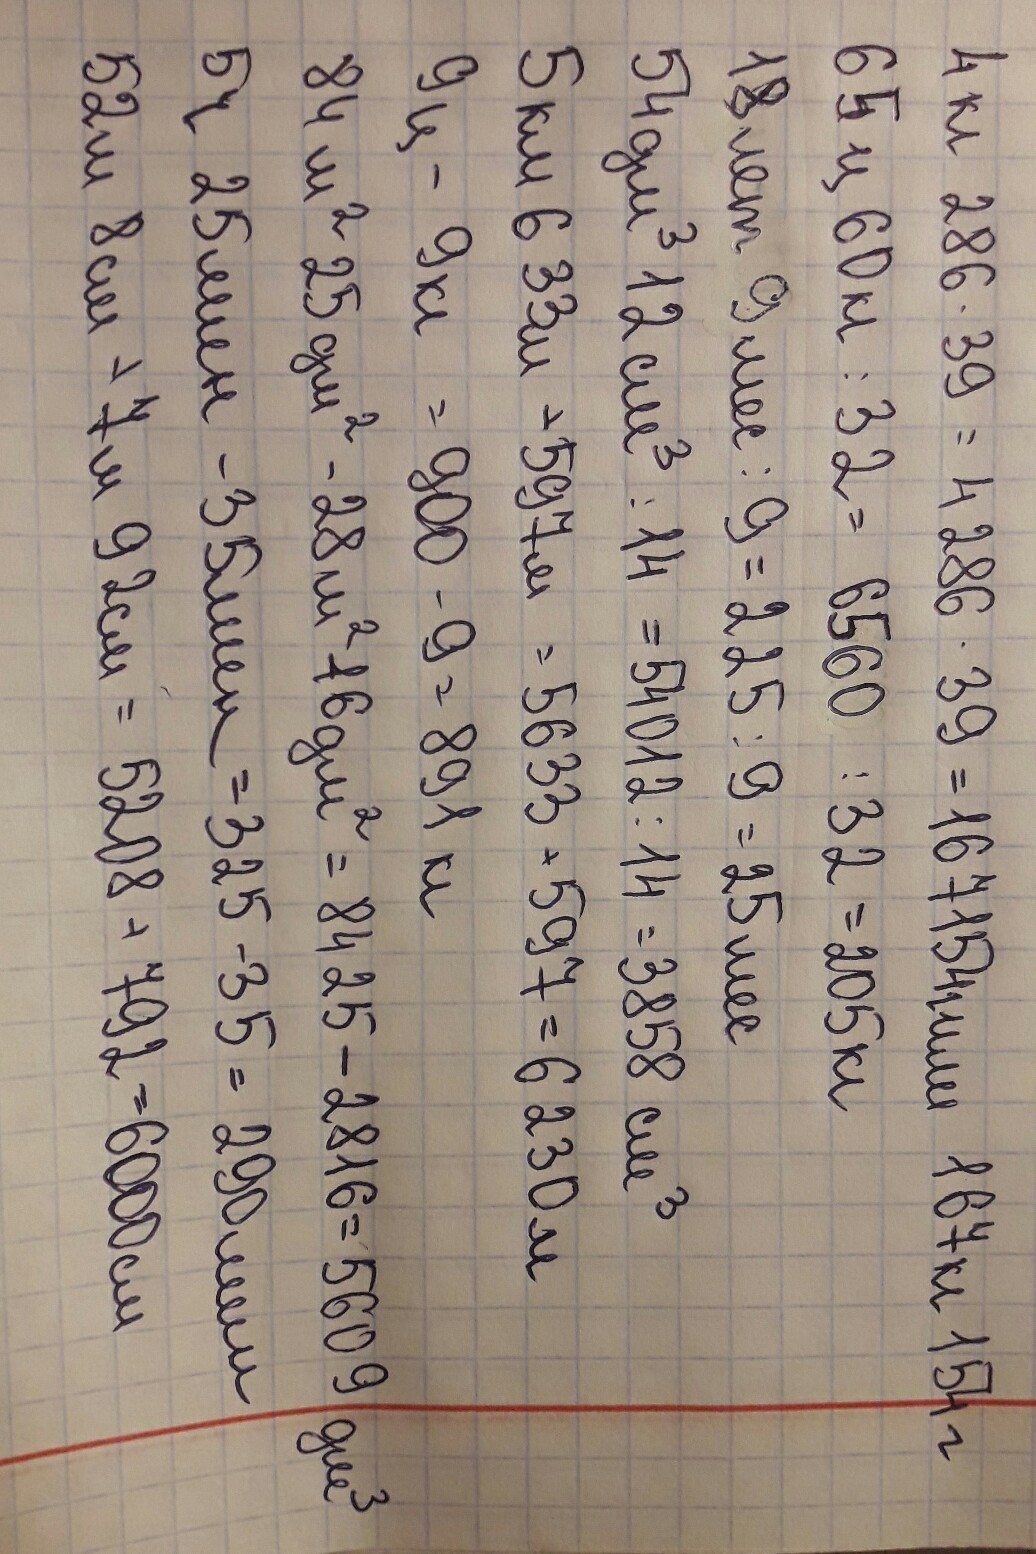 4 кг 286 · 39 = 4286 · 39 = 167154 167кг 154г
65ц 60кг : 32 = 6560 : 32 = 205кг
18лет 9мес : 9 = 225 : 9 = 25мес
54дм³ 12см³ : 14 = 54012 : 14 = 3858 см³
5км 633м + 597м = 5633 + 597 = 6 230м
9ц - 9кг = 900 - 9 = 891кг
84м² 25дм² - 28м² 16дм² = 8425 - 2816 = 5609 дм³
5ч 25мин - 35мин = 325 - 35 = 290мин
52м 8см + 7м 92см = 5208 + 792 = 6000см